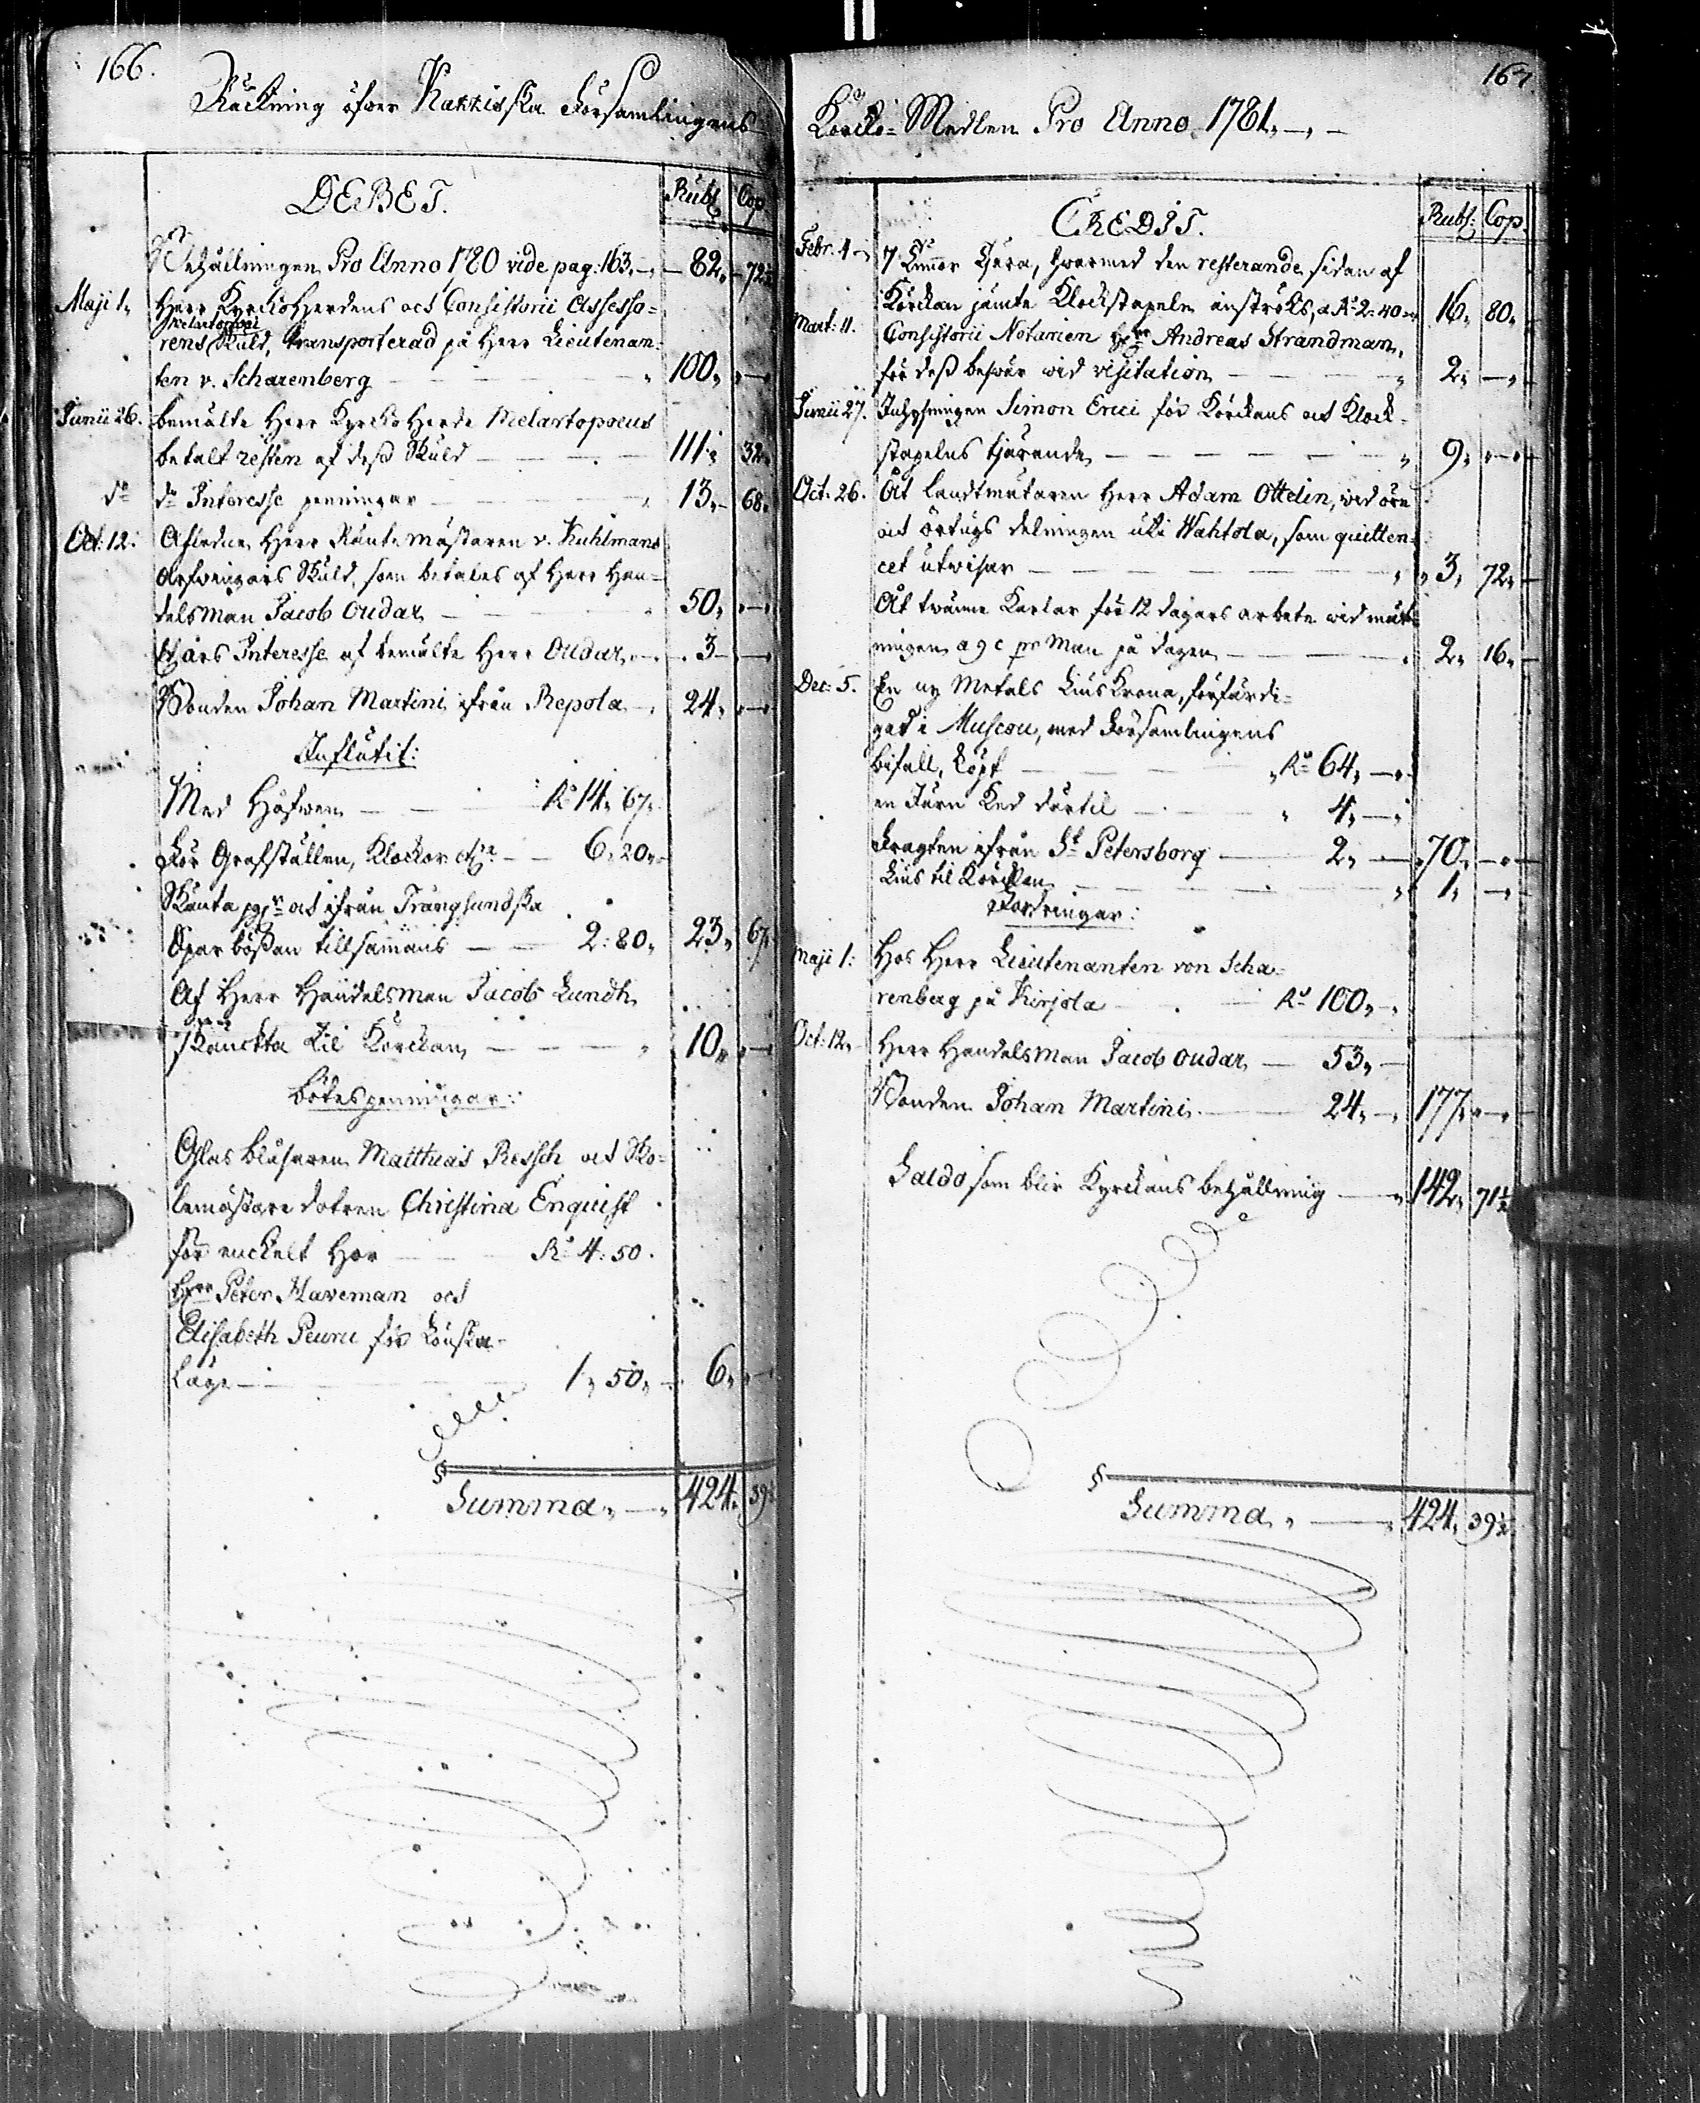 166.
Räckning öfwer Kakkiska Församlingens
DEBET.
Rubl Cop
Behållningen Pro Anno 1780 vide pag: 163. 82. 72½
Maji 1. Herr KyrckoHerdens och Consistorii Assesso=
Melartopæi
rens Skuld, transporterad på Herr Lieutenan=
ten v. Scharenberg 100. —
Junii 26. bemälte Herr KyrckoHerde Melartopoeus
betalt resten af dess Skuld 111. 32.
do do Interesse penningar 13. 68.
Oct: 12. Afledne Herr Räntemästaren v. Kuhlmans
Arfwingars Skuld, som betales af Herr Han=
delsman Jacob Oudar 50. —
åhrs Interesse af bemälte Herr Oudar 3 —
Bonden Johan Martini ifrån Repola 24. —
Influtit:
Med Håfwen Ro 14. 67.
För Grafställen, Klockor etc 6. 20.
Skänkta och ifrån Trångsundska
Sparbössan tillsamans 2: 80. 23. 67.
Af Herr Handelsman Jacob Lundh
skänckta til Körckan 10. —
Bötespenningar:
Glasblåsaren Matthias Resch och Sko=
lemästare dotren Christina Enquist
för enckelt Hor Ro 4: 50.
Herr Peter Haveman och
Elisabeth Peuru för Lönska=
Läge 1. 50. 6. —
Summa 424. 39½
167.
Körcko=Medlen Pro Anno 1781.
CREDIT.
Rubl: Cop.
Febr. 4. 7 Tunnor Tjära, hwarmed den resterande sidan af
Körckan jämte Klockstapeln anströks, a Ro 2: 40 16. 80.
Mart: 11. Consistorii Notarien Herr Andreas Strandman,
för dess beswär wid visitation 2. —
Junii 27. Inhysingen Simon Erici för Körckans och Klock=
stapelns tjärande 9. —
Oct. 26. Åt landtmätaren Herr Adam Ottelin, wid öre
och örtugs delningen uti Wahtola, som quitten=
cet utwisar 3. 72.
Åt twänne Karlar för 12 dagars arbete wid mät=
ningen a 9 c pr Man på dagen 2. 16.
Dec: 5. En ny Metals Liuskrona, förfärdi=
gad i Muscou, med Församlingens
bifall, köpt Ro 64. —
en Järn Ked därtil 4. —
Fragten ifrån St Petersborg 2. — 70. —
Lius til Körckan 1. —
Fordringar:
Maji 1: Hos Herr Lieutenanten von Scha=
renberg på Kirjola Ro 100. —
Oct: 12. Herr Handelsman Jacob Oudar 53. —
Bonden Johan Martini 24. — 177. —
Saldo som blir Kyrckans behållning 142. 71½
Summa 424. 39½